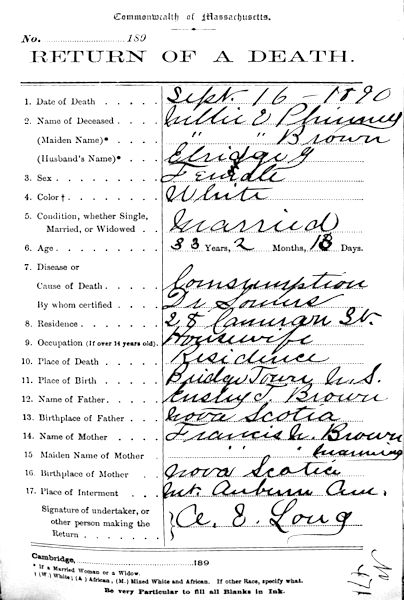 Commonwealth of Massachusetts.
No. 189
RETURN OF A DEATH.
1. Date of Death Sept. 16 - 1890
2. Name of Deceased Millie E Phinney
(Maiden Name)* " " Brown
(Husband's Name)* Elridge G
3. Sex Female
4. Color † White
5. Condition, whether Single,
Married, or Widowed Married
6. Age 33 Years, 2 Months, 18 Days.
7. Disease or
Cause of Death Comsymption
By whom certified Dr Somers
8. Residence 28 Cameron St.
9. Occupation (If over 14 years old) Housewife
10. Place of Death Residence
11. Place of Birth Bridge Town N.S.
12. Name of Father Brown
13. Birthplace of Father Nova Scotia
14. Name of Mother Francis Brown
15 Maiden Name of Mother " " Manning
16. Birthplace of Mother Nova Scotia
17. Place of Interment Mt. Auburn
Signature of undertaker, or
other person making the
Return A. E. Long
Cambridge, 189
* If a Married Woman or a Widow.
† (W.) White; (A) African, (M.) Mixed White and African. If other Race, specify what.
Be very Particular to fill all Blanks in Ink.